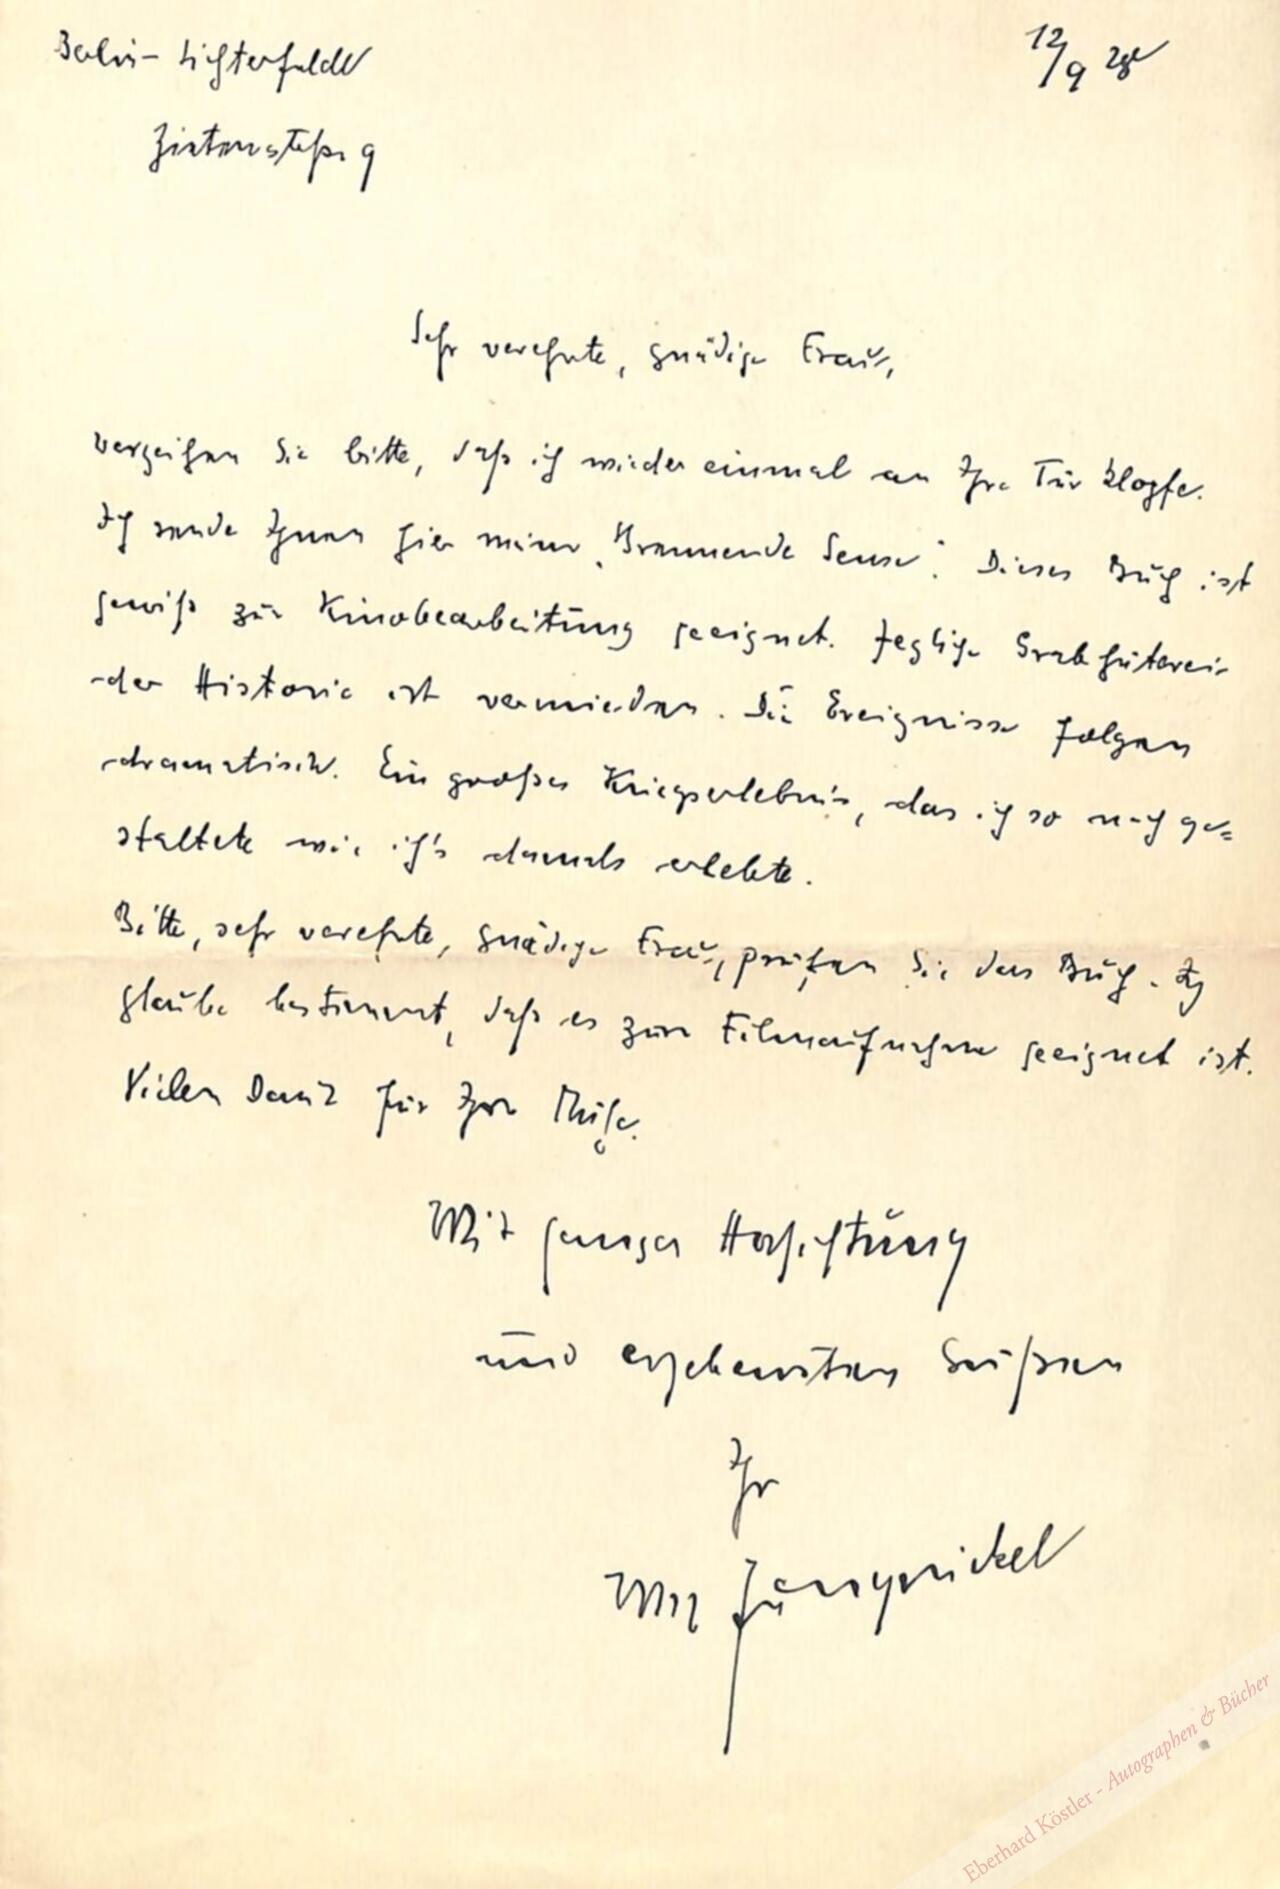 Berlin-Lichterfelde
12/9 28
Zietenstraße 9
Sehr verehrte, gnädige Frau,
verzeihen Sie bitte, daß ich wieder einmal an Ihre Tür klopfe.
Ich sende Ihnen hier meine „Brennende Sense". Dieses Buch ist
gewiß zur Kinobearbeitung geeignet. Jegliche Grabhüterei
der Historie ist vermieden. Die Ereignisse folgen
dramatisch. Ein großes Kriegserlebnis, das ich so nach ge=
staltete wie ich's damals erlebte.
Bitte, sehr verehrte, gnädige Frau, prüfen Sie das Buch. Ich
glaube bestimmt, daß es zur Filmaufnahme geeignet ist.
Vielen Dank für Ihre Mühe.
Mit ganzer Hochachtung
und ergebensten Grüßen
Ihr
Max Jungnickel
Eberhard Köstler - Autographen & Bücher